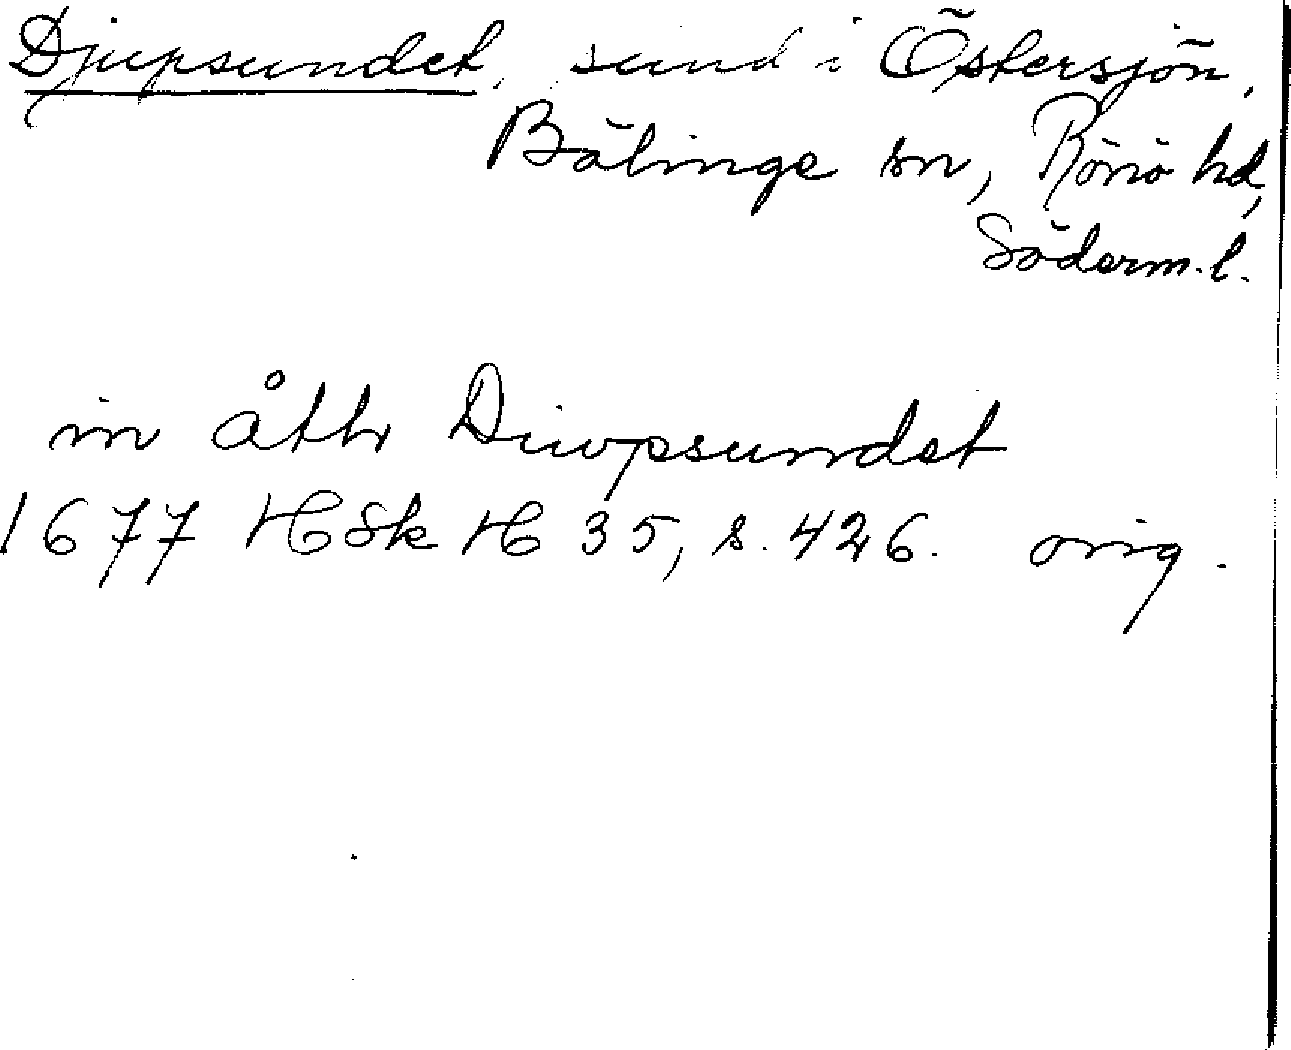 Djupsundet, sund i Östersjön,
Bälinge sn, Rönö hd,
Söderm. l.
in åth Diupsundet
1677 HSk H 35, s. 426. orig.